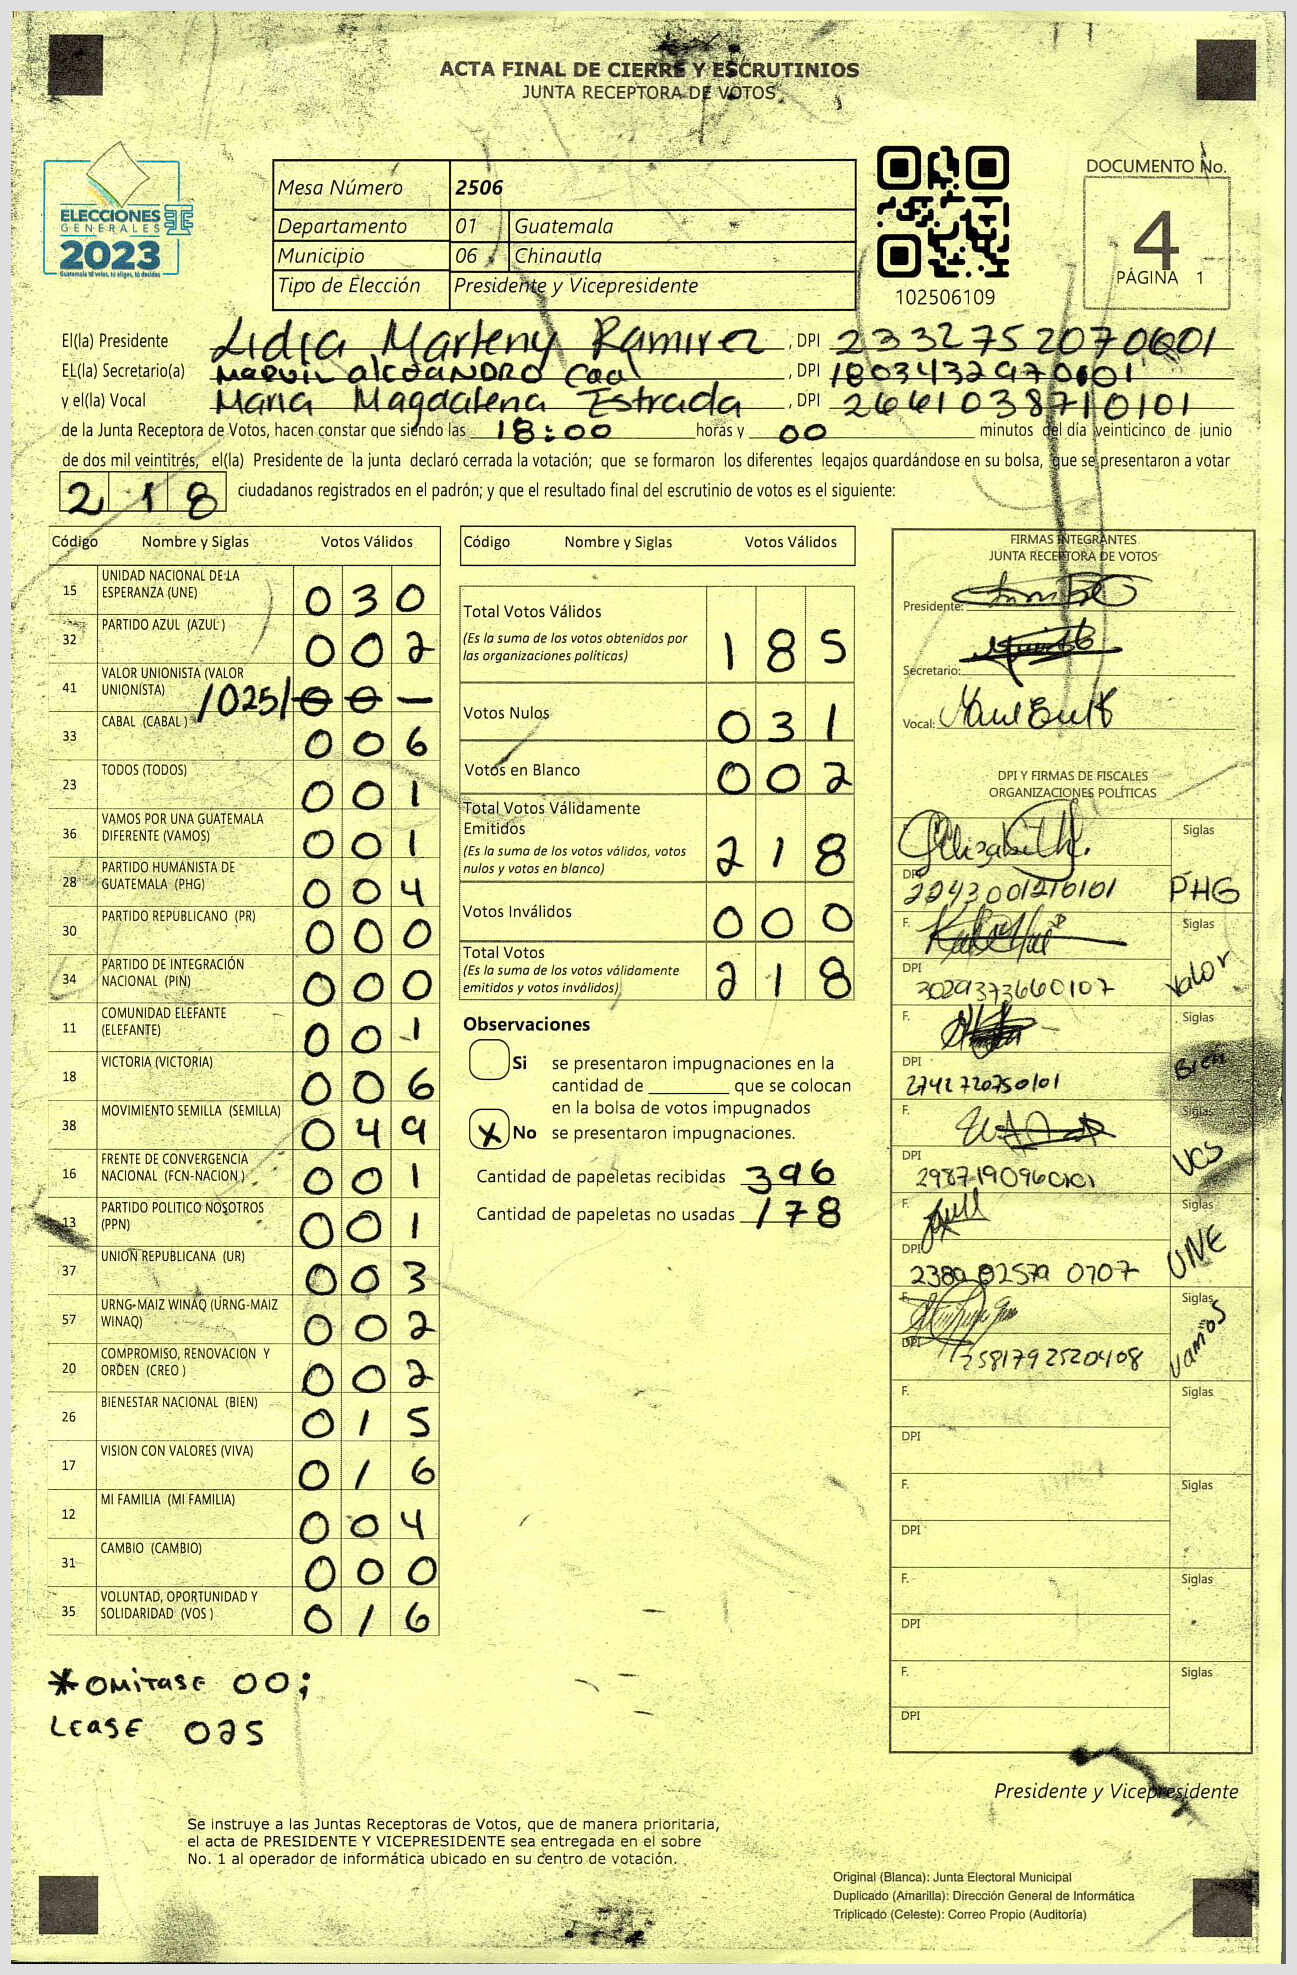 ACTA FINAL DE CIERRE Y ESCRUTINIOS
JUNTA RECEPTORA DE VOTOS
ELECCIONES
GENERALES
2023
Mesa Número 2506
Departamento 01 Guatemala
Municipio 06 Chinautla
Tipo de Elección Presidente y Vicepresidente
102506109
DOCUMENTO No.
4
PÁGINA 1
El(la) Presidente Lidia Marleny Ramirez, DPI 2332752070601
EL(la) Secretario(a), DPI
y el(la) Vocal Maria Magdalena Estrada, DPI 2661038710101
de la Junta Receptora de Votos, hacen constar que siendo las 18:00 horas y 00 minutos del día veinticinco de junio
de dos mil veintitrés, el(la) Presidente de la junta declaró cerrada la votación; que se formaron los diferentes legajos guardándose en su bolsa, que se presentaron a votar
218 ciudadanos registrados en el padrón; y que el resultado final del escrutinio de votos es el siguiente:
Código Nombre y Siglas Votos Válidos
15 UNIDAD NACIONAL DE LA ESPERANZA (UNE) 030
32 PARTIDO AZUL (AZUL ) 002
41 VALOR UNIONISTA (VALOR UNIONISTA) /025/ 00-
33 CABAL (CABAL ) 006
23 TODOS (TODOS) 001
36 VAMOS POR UNA GUATEMALA DIFERENTE (VAMOS) 001
28 PARTIDO HUMANISTA DE GUATEMALA (PHG) 004
30 PARTIDO REPUBLICANO (PR) 000
34 PARTIDO DE INTEGRACIÓN NACIONAL (PIN) 000
11 COMUNIDAD ELEFANTE (ELEFANTE) 001
18 VICTORIA (VICTORIA) 006
38 MOVIMIENTO SEMILLA (SEMILLA) 049
16 FRENTE DE CONVERGENCIA NACIONAL (FCN-NACION ) 001
13 PARTIDO POLITICO NOSOTROS (PPN) 001
37 UNION REPUBLICANA (UR) 003
57 URNG-MAIZ WINAQ (URNG-MAIZ WINAQ) 002
20 COMPROMISO, RENOVACION Y ORDEN (CREO ) 002
26 BIENESTAR NACIONAL (BIEN) 015
17 VISION CON VALORES (VIVA) 016
12 MI FAMILIA (MI FAMILIA) 004
31 CAMBIO (CAMBIO) 000
35 VOLUNTAD, OPORTUNIDAD Y SOLIDARIDAD (VOS ) 016
*OMITASE 00;
LEASE 025
Código Nombre y Siglas Votos Válidos
Total Votos Válidos 185
(Es la suma de los votos obtenidos por
las organizaciones políticas)
Votos Nulos 031
Votos en Blanco 002
Total Votos Válidamente
Emitidos 218
(Es la suma de los votos válidos, votos
nulos y votos en blanco)
Votos Inválidos 000
Total Votos 218
(Es la suma de los votos válidamente
emitidos y votos inválidos)
Observaciones
Si se presentaron impugnaciones en la
cantidad de ________ que se colocan
en la bolsa de votos impugnados
X No se presentaron impugnaciones.
Cantidad de papeletas recibidas 396
Cantidad de papeletas no usadas 178
FIRMAS INTEGRANTES
JUNTA RECEPTORA DE VOTOS
Presidente:
Secretario:
Vocal:
DPI Y FIRMAS DE FISCALES
ORGANIZACIONES POLÍTICAS
Siglas PHG
DPI 2243001210101
F. Siglas Valor
DPI 3029373660107
F. Siglas Bien
DPI 2742720750101
F. Siglas VOS
DPI 2987190960101
F. Siglas UNE
DPI
F. Siglas Vamos
DPI 2581792520408
F. Siglas
DPI
F. Siglas
DPI
F. Siglas
DPI
F. Siglas
DPI
Presidente y Vicepresidente
Se instruye a las Juntas Receptoras de Votos, que de manera prioritaria,
el acta de PRESIDENTE Y VICEPRESIDENTE sea entregada en el sobre
No. 1 al operador de informática ubicado en su centro de votación.
Original (Blanca): Junta Electoral Municipal
Duplicado (Amarilla): Dirección General de Informática
Triplicado (Celeste): Correo Propio (Auditoría)